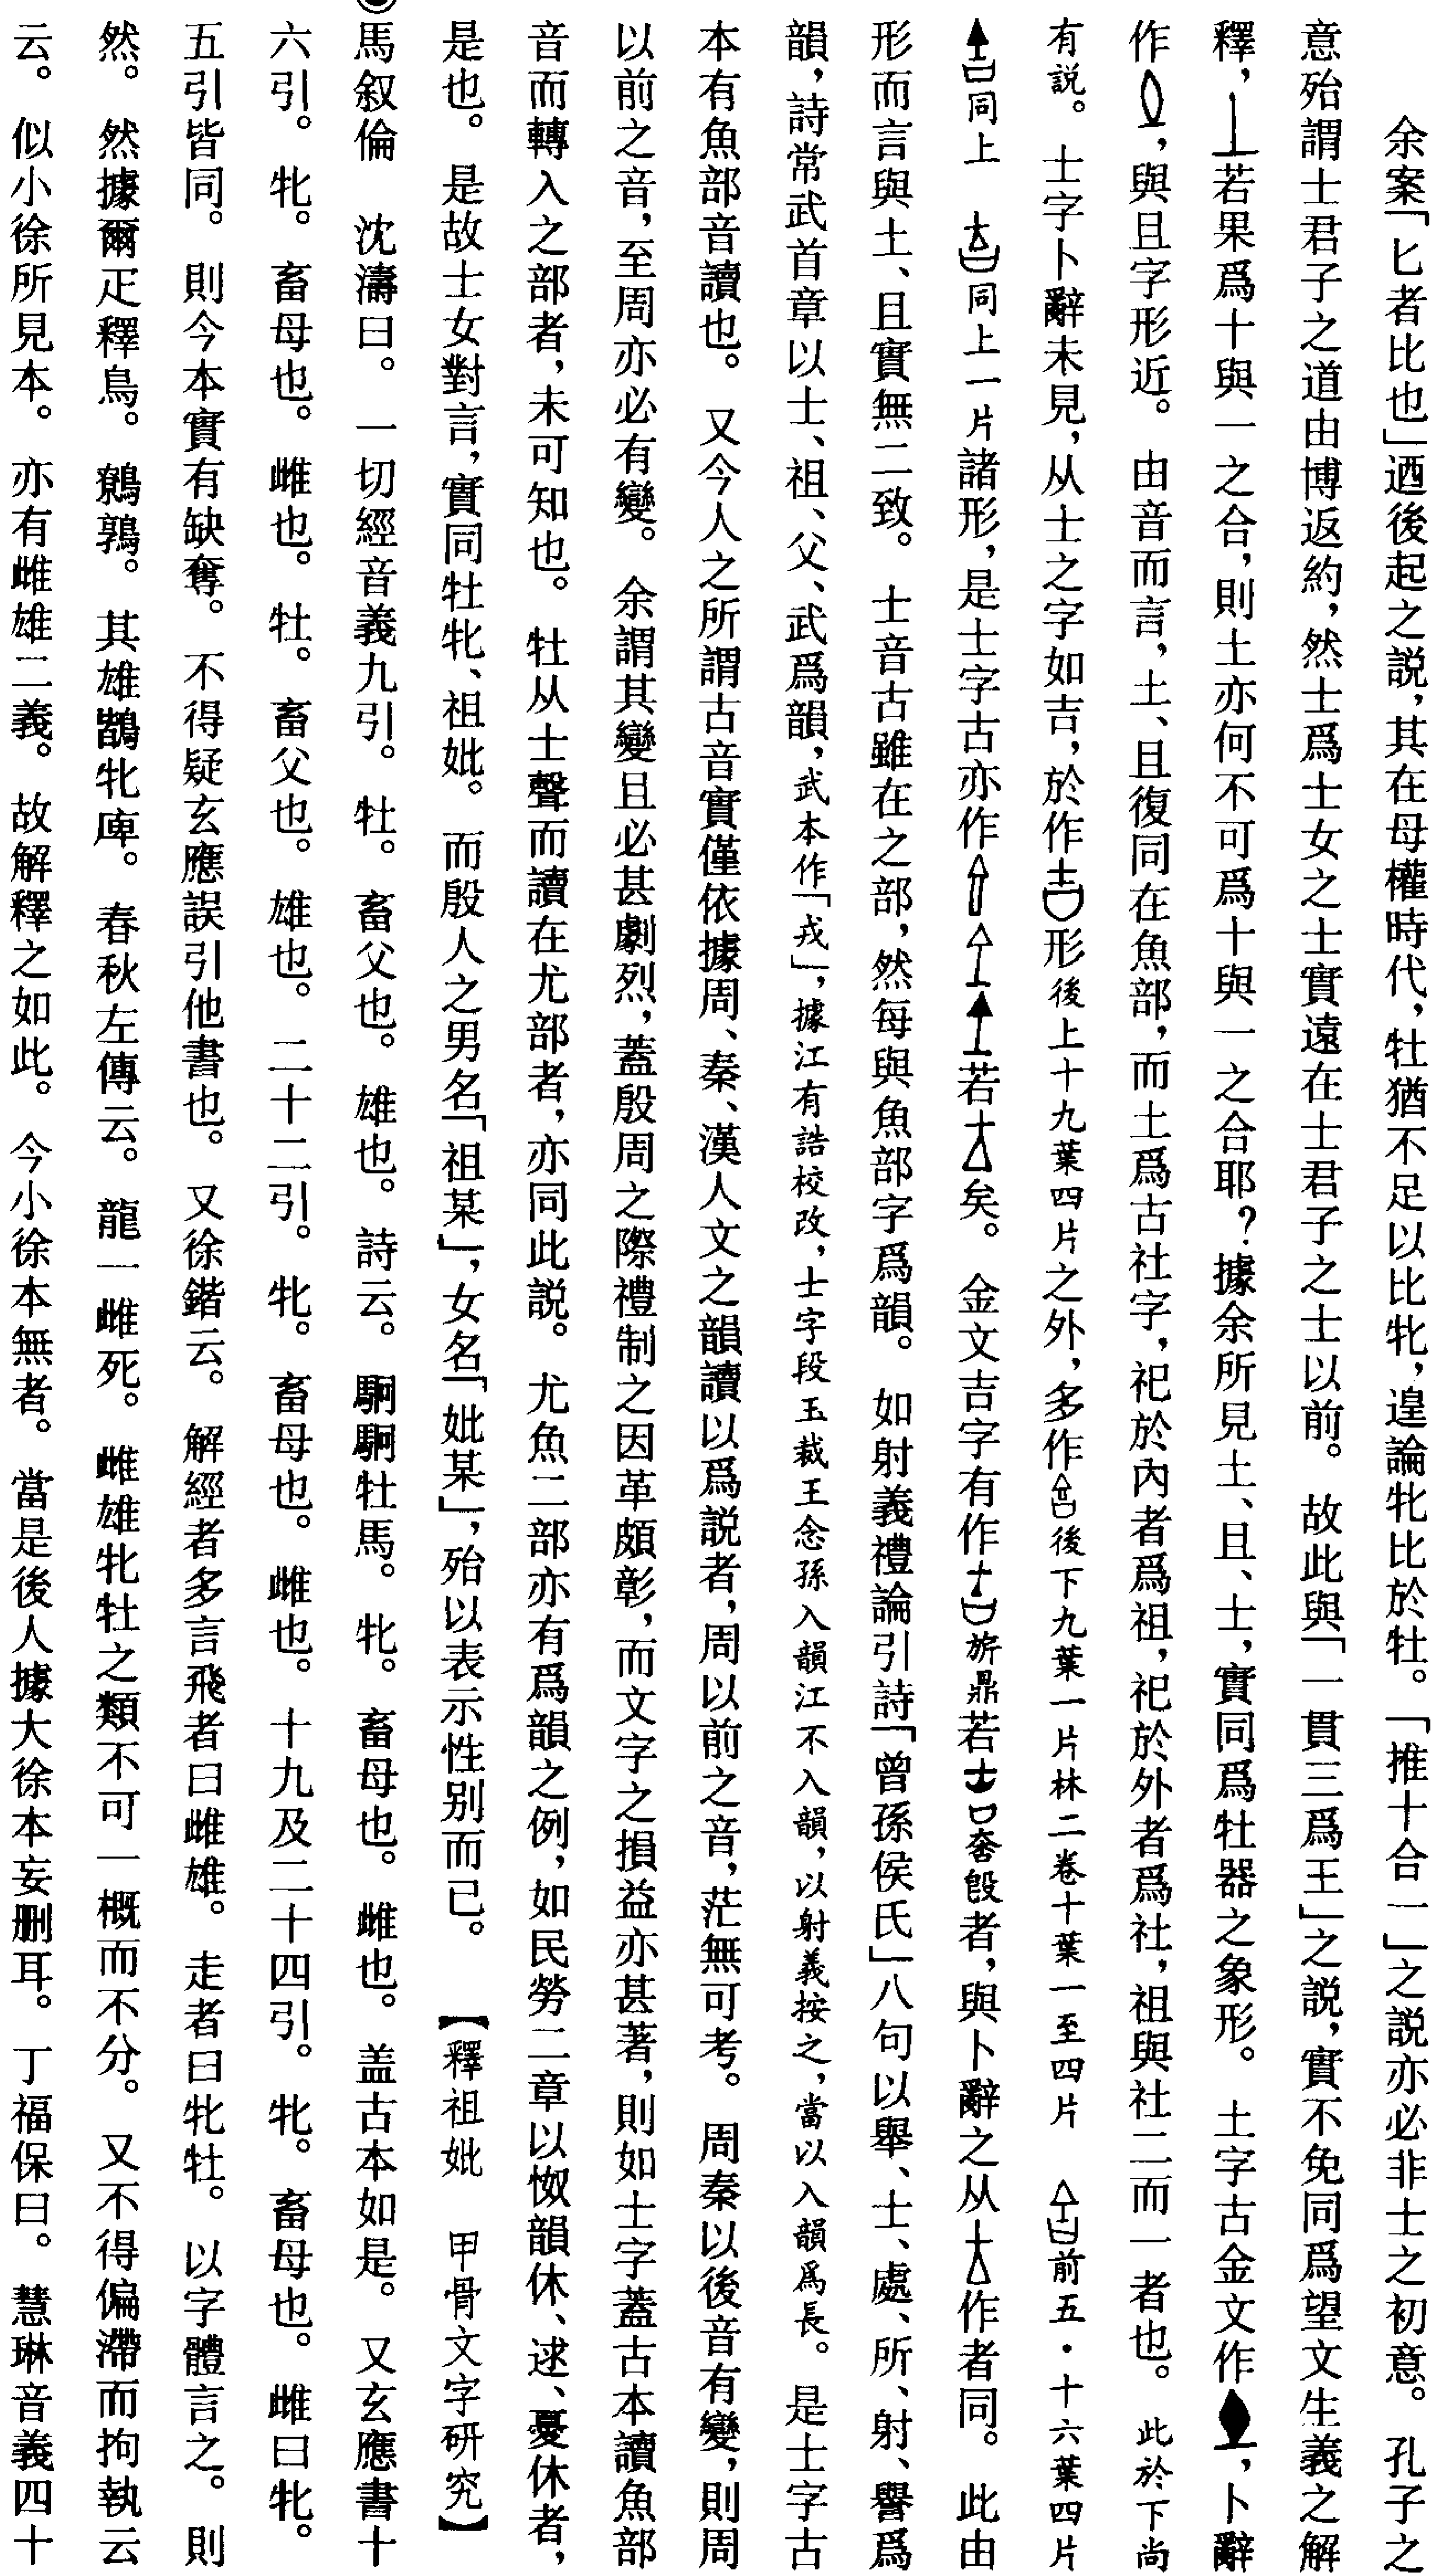 余案「匕者比也」迺後起之説，其在母權時代，牡猶不足以比牝，遑論牝比於牡。「推十合一」之説亦必非士之初意。孔子之
意殆謂士君子之道由博返約，然士爲士女之士實遠在士君子之士以前。故此與「一貫三爲王」之説，實不免同爲望文生義之解
釋，⊥若果爲十與一之合，則土亦何不可爲十與一之合耶？據余所見土、且、士，實同爲牡器之象形。土字古金文作，卜辭
作，與且字形近。由音而言，土、且復同在魚部，而土爲古社字，祀於內者爲祖，祀於外者爲社，祖與社二而一者也。此於下尚
有説。士字卜辭未見，从士之字如吉，於作形後上十九葉四片之外，多作後下九葉一片林二卷十葉一至四片　前五·十六葉四片
同上　同上一片諸形，是士字古亦作若矣。金文吉字有作旂鼎若㚛𣪘者，與卜辭之从作者同。此由
形而言與土、且實無二致。士音古雖在之部，然每與魚部字爲韻。如射義禮論引詩「曾孫侯氏」八句以舉、士、處、所、射、譽爲
韻，詩常武首章以士、祖、父、武爲韻，武本作「戎」，據江有誥校改，士字段玉裁王念孫入韻江不入韻，以射義按之，當以入韻爲長。是士字古
本有魚部音讀也。又今人之所謂古音實僅依據周、秦、漢人文之韻讀以爲説者，周以前之音，茫無可考。周秦以後音有變，則周
以前之音，至周亦必有變。余謂其變且必甚劇烈，蓋殷周之際禮制之因革頗彰，而文字之損益亦甚著，則如士字蓋古本讀魚部
音而轉入之部者，未可知也。牡从士聲而讀在尤部者，亦同此説。尤魚二部亦有爲韻之例，如民勞二章以怓韻休、逑、憂休者，
是也。是故士女對言，實同牡牝、祖妣。而殷人之男名「祖某」，女名「妣某」，殆以表示性别而已。【釋祖妣　甲骨文字研究】
馬叙倫　沈濤曰。一切經音義九引。牡。畜父也。雄也。詩云。駉駉牡馬。牝。畜母也。雌也。盖古本如是。又玄應書十
六引。牝。畜母也。雌也。牡。畜父也。雄也。二十二引。牝。畜母也。雌也。十九及二十四引。牝。畜母也。雌曰牝。
五引皆同。則今本實有缺奪。不得疑玄應誤引他書也。又徐鍇云。解經者多言飛者曰雌雄。走者曰牝牡。以字體言之。則
然。然據爾疋釋鳥。鷯鶉。其雄鶛牝庳。春秋左傳云。龍一雌死。雌雄牝牡之類不可一概而不分。又不得偏滯而拘執云
云。似小徐所見本。亦有雌雄二義。故解釋之如此。今小徐本無者。當是後人據大徐本妄删耳。丁福保曰。慧琳音義四十